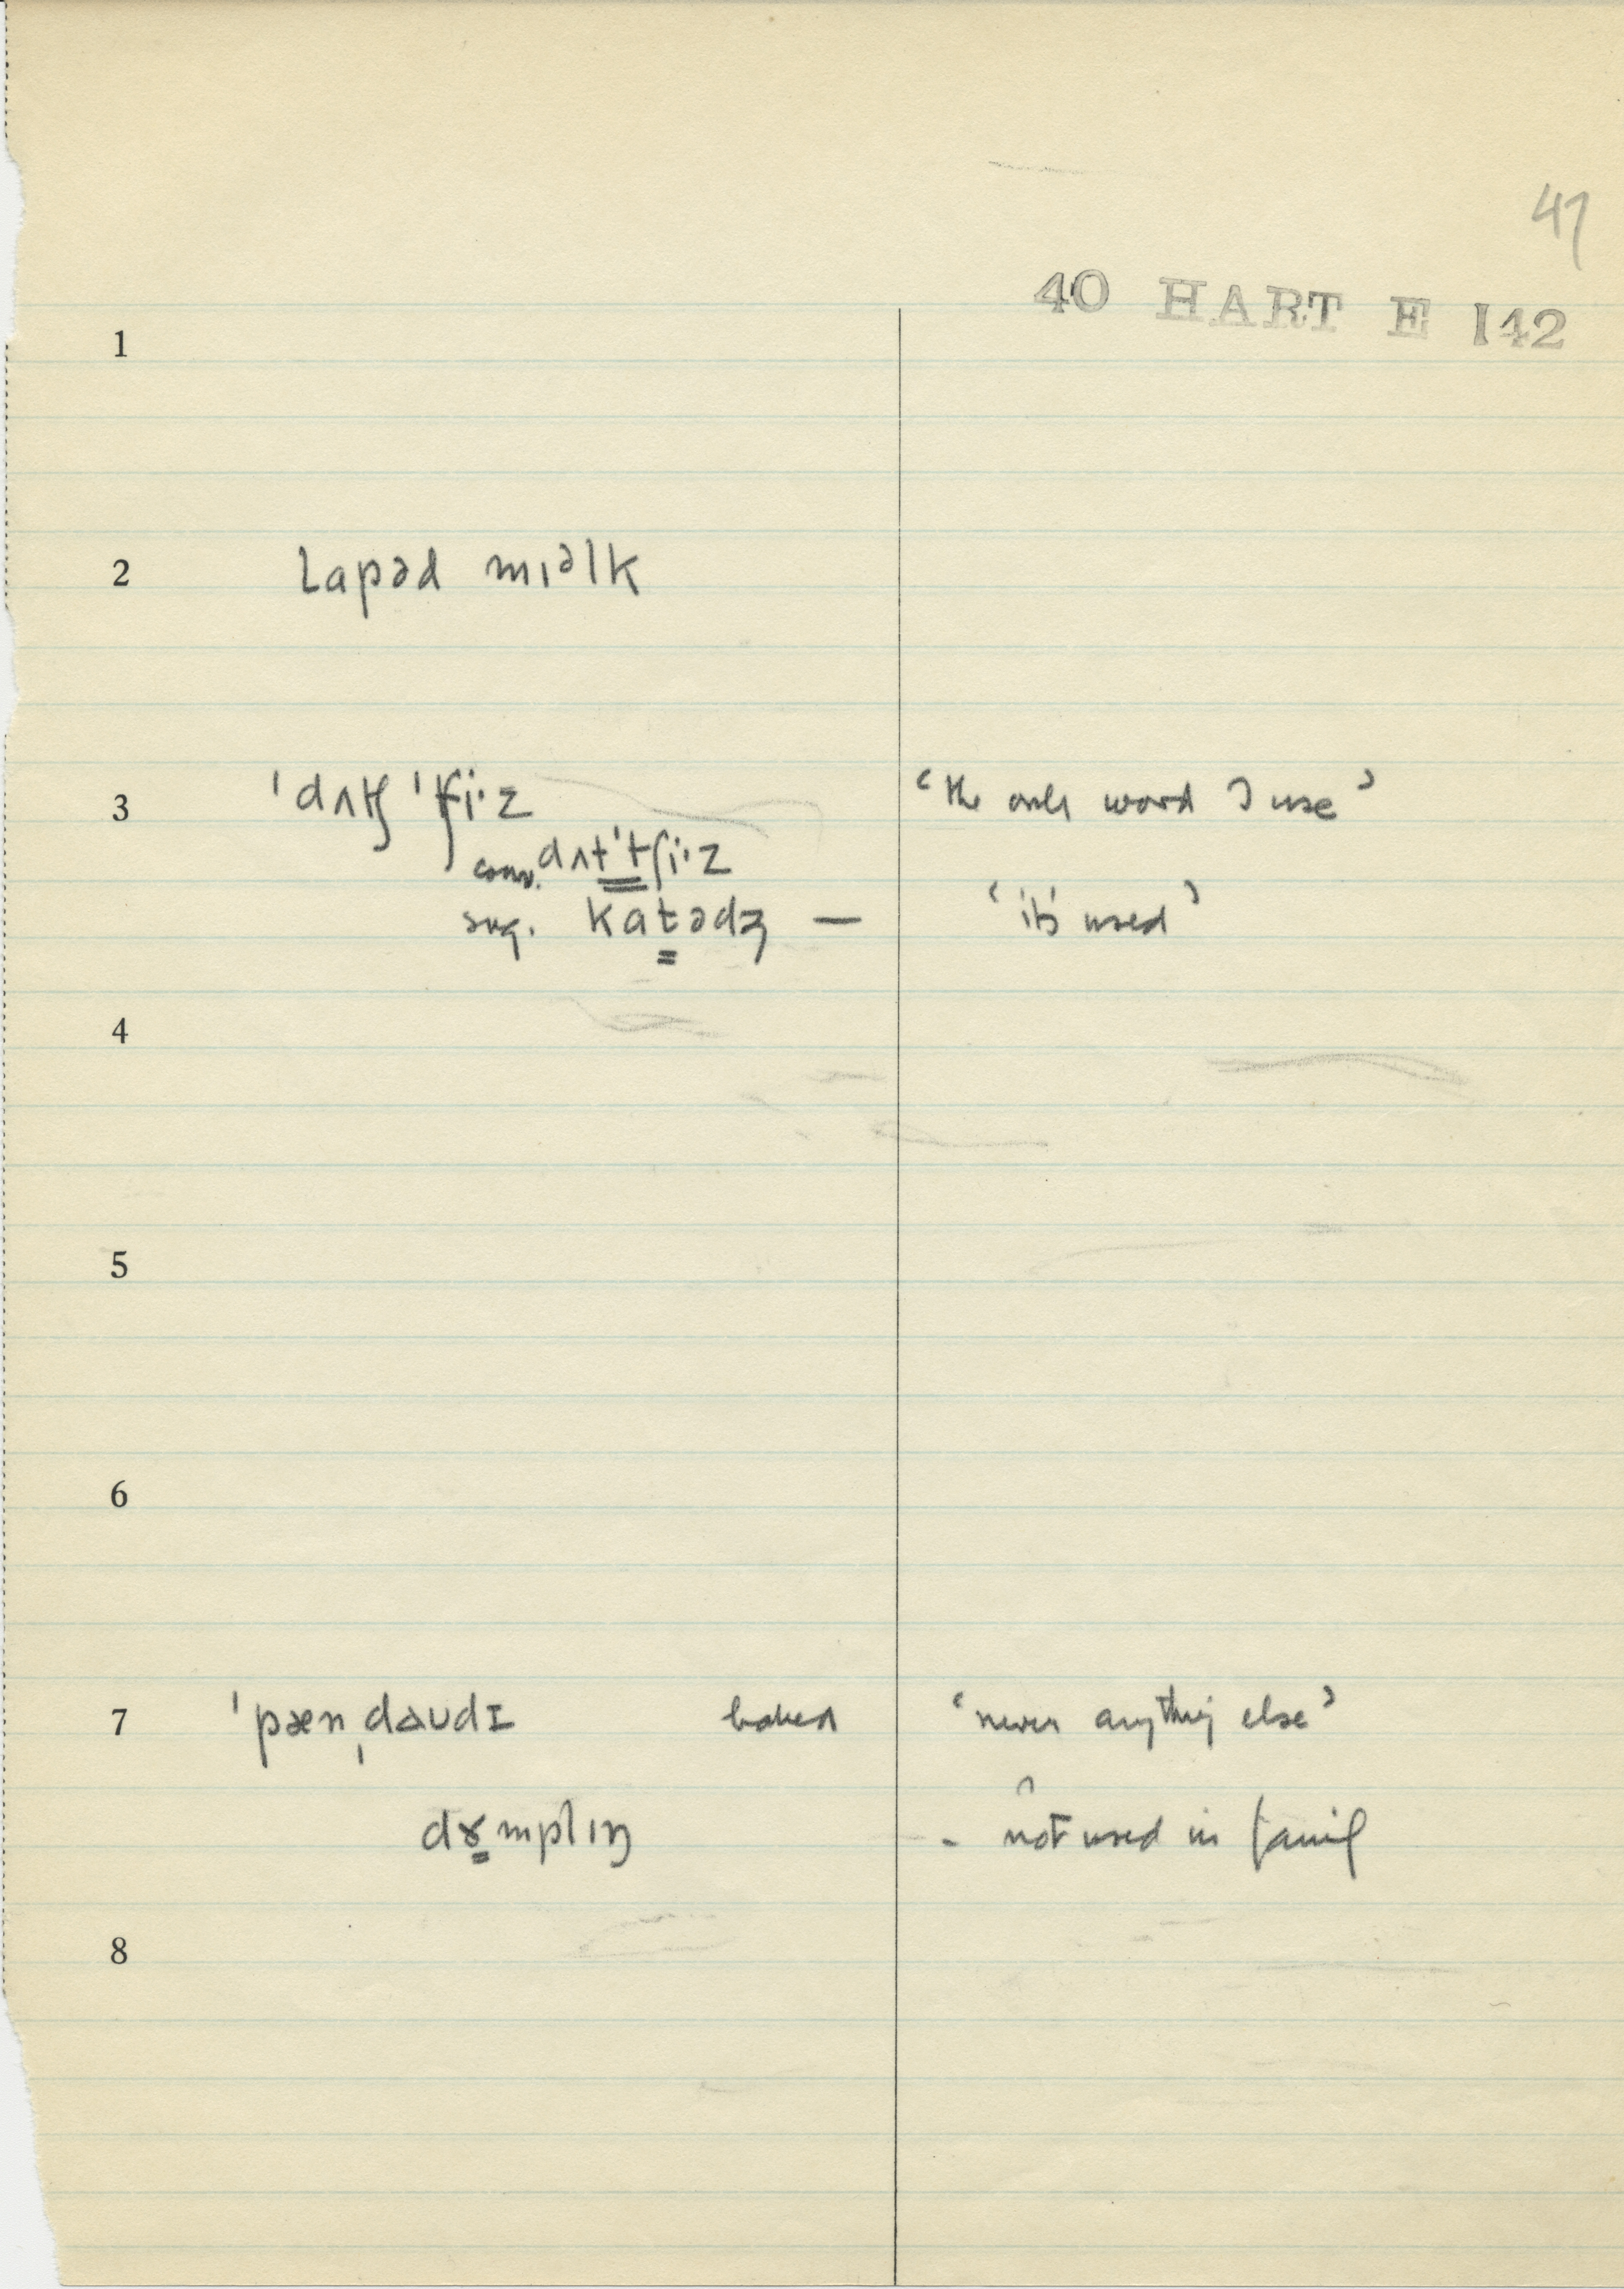 47
40 HART E 142
1
2 lapəd mɪəlk
3 ˈdʌtʃ ˈtʃi·z ‘the only word I use’
conv. dʌtˈtʃi·z
sug. katədʒ — ‘it's used’
4
5
6
7 ˈpænˌdaʊdɪ baked ‘never anything else’
dɤmplɪŋ - not used in family
8